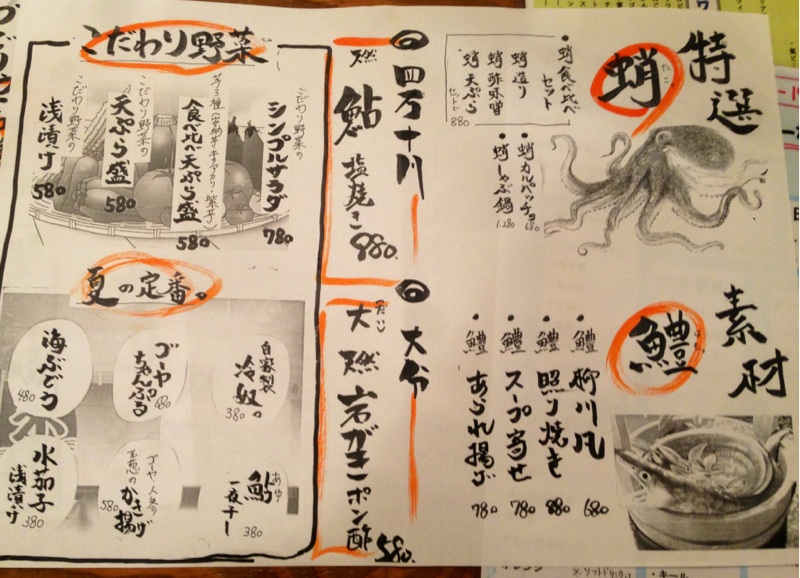 特選
素材
蛸
たこ
・蛸食べ比べセット
蛸造り
蛸酢味噌
蛸天ぷら
セットで
880
・蛸カルパッチョ
680
・蛸しゃぶ鍋
1,280
鱧
・鱧柳川風
680
・鱧照り焼き
880
・鱧スープ寄せ
780
・鱧あられ揚げ
780
◎四万十川
天然
鮎塩焼き
980
◎大分
天然岩がきポン酢
580
こだわり野菜
こだわり野菜の
シンプルサラダ
780
食べ比べ天ぷら盛
580
こだわり野菜の
天ぷら盛
580
こだわり野菜の
浅漬け
580
夏の定番。
自家製
冷奴
380
ゴーヤ
ちゃんぷる
680
海ぶどう
480
あゆ
鮎
一夜干し
380
ゴーヤ・人参・
玉葱の
かき揚げ
580
水茄子
浅漬け
380
ソフトドリンク
・キール